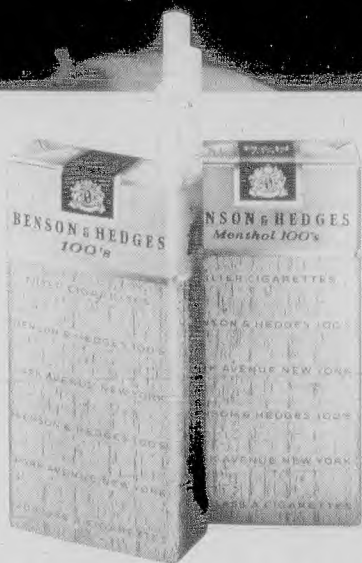 BENSON & HEDGES
100's
FILTER CIGARETTES
BENSON & HEDGES 100'S
PARK AVENUE NEW YORK
BENSON & HEDGES 100'S
PARK AVENUE NEW YORK
CIGARETTES
NSON & HEDGES
Menthol 100's
LTER CIGARETTES
NSON & HEDGES 100'S
K AVENUE NEW YORK
NSON & HEDGES 100'S
K AVENUE NEW YORK
CIGARETTES